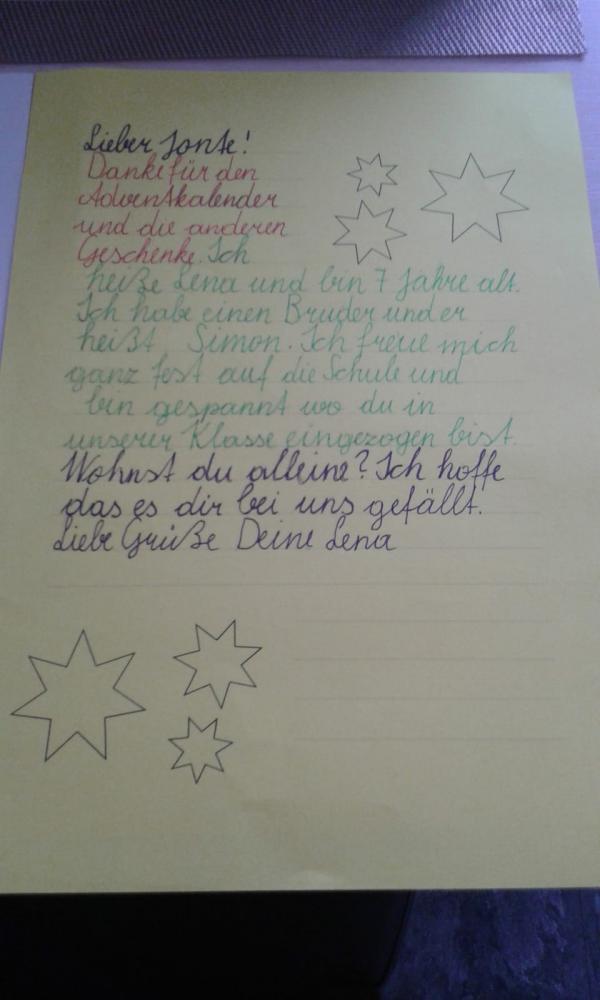 Lieber Jonte!
Danke für den
Adventkalender
und die anderen
Geschenke. Ich
heiße Lena und bin 7 Jahre alt.
Ich habe einen Bruder und er
heißt Simon. Ich freue mich
ganz fest auf die Schule und
bin gespannt wo du in
unserer Klasse eingezogen bist.
Wohnst du alleine? Ich hoffe
das es dir bei uns gefällt.
Liebe Grüße Deine Lena